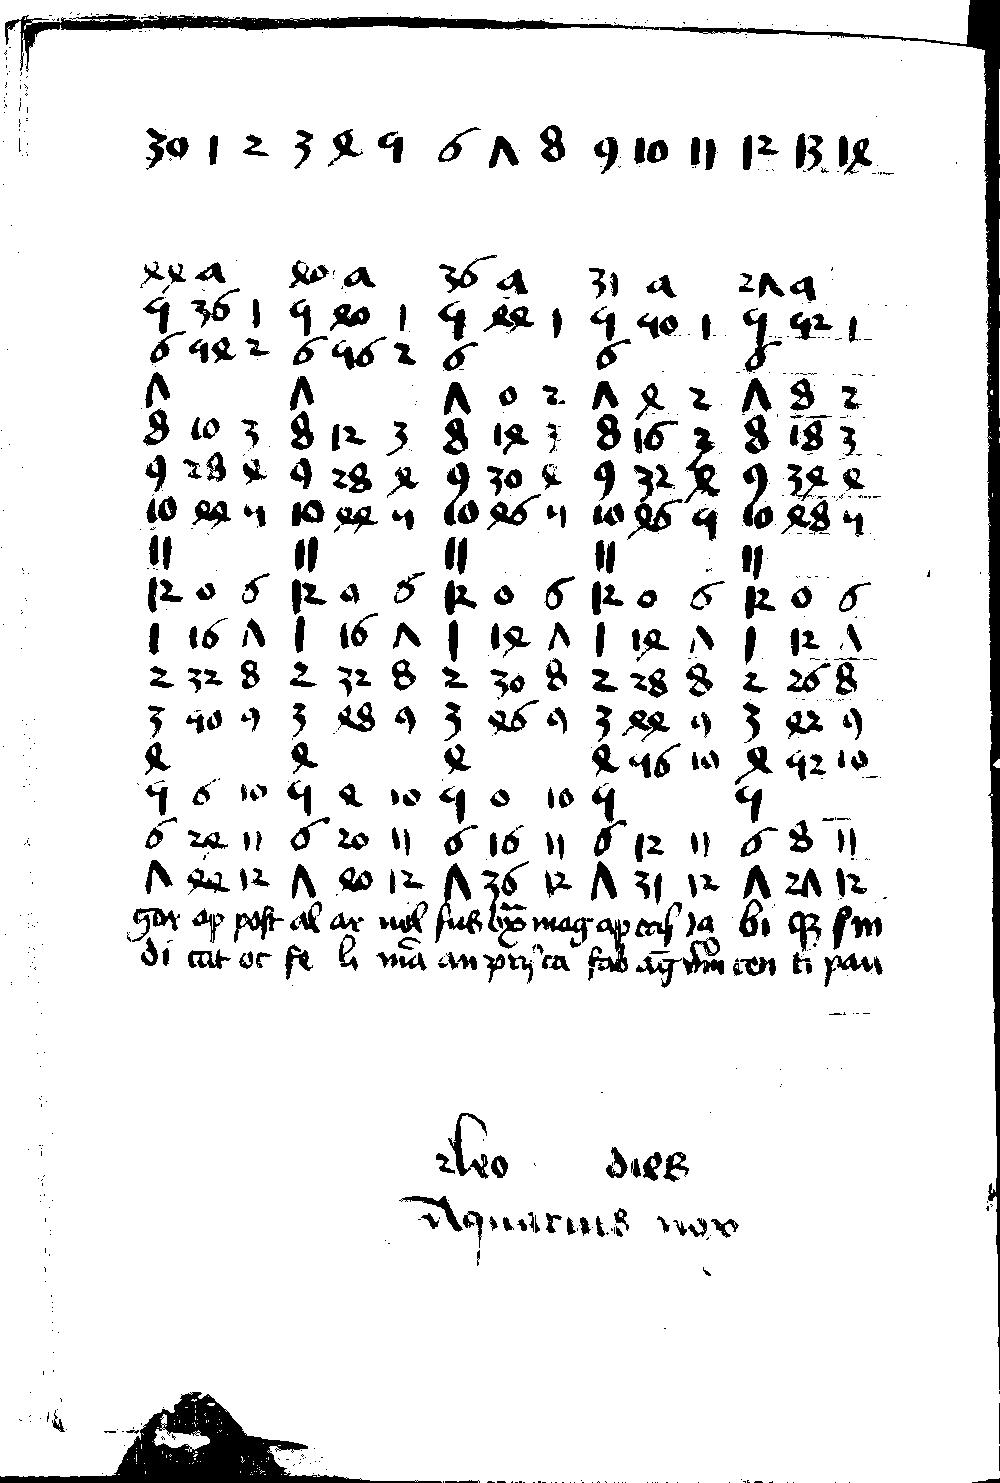 30 1 2 3 4 5 6 7 8 9 10 11 12 13 14
44 a 40 a 36 a 31 a 27 a
5 36 1 5 40 1 5 44 1 5 50 1 5 52 1
6 54 2 6 56 2 6 6 6
7 7 7 0 2 7 4 2 7 8 2
8 10 3 8 12 3 8 14 3 8 16 2 8 18 3
9 28 4 9 28 4 9 30 4 9 32 4 9 34 4
10 44 5 10 44 5 10 46 5 10 46 5 10 48 5
11 11 11 11 11
12 0 6 12 0 6 12 0 6 12 0 6 12 0 6
1 16 7 1 16 7 1 14 7 1 14 7 1 12 7
2 32 8 2 32 8 2 30 8 2 28 8 2 26 8
3 50 9 3 48 9 3 46 9 3 44 9 3 42 9
4 4 4 4 56 10 4 52 10
5 6 10 5 4 10 5 0 10 5 5
6 24 11 6 20 11 6 16 11 6 12 11 6 8 11
7 44 12 7 40 12 7 36 12 7 31 12 7 27 12
gor ap post al ar mag ap bi
di oc fe li mā an fab ag̅ cen ti pau
leo dies
Aquarius nox